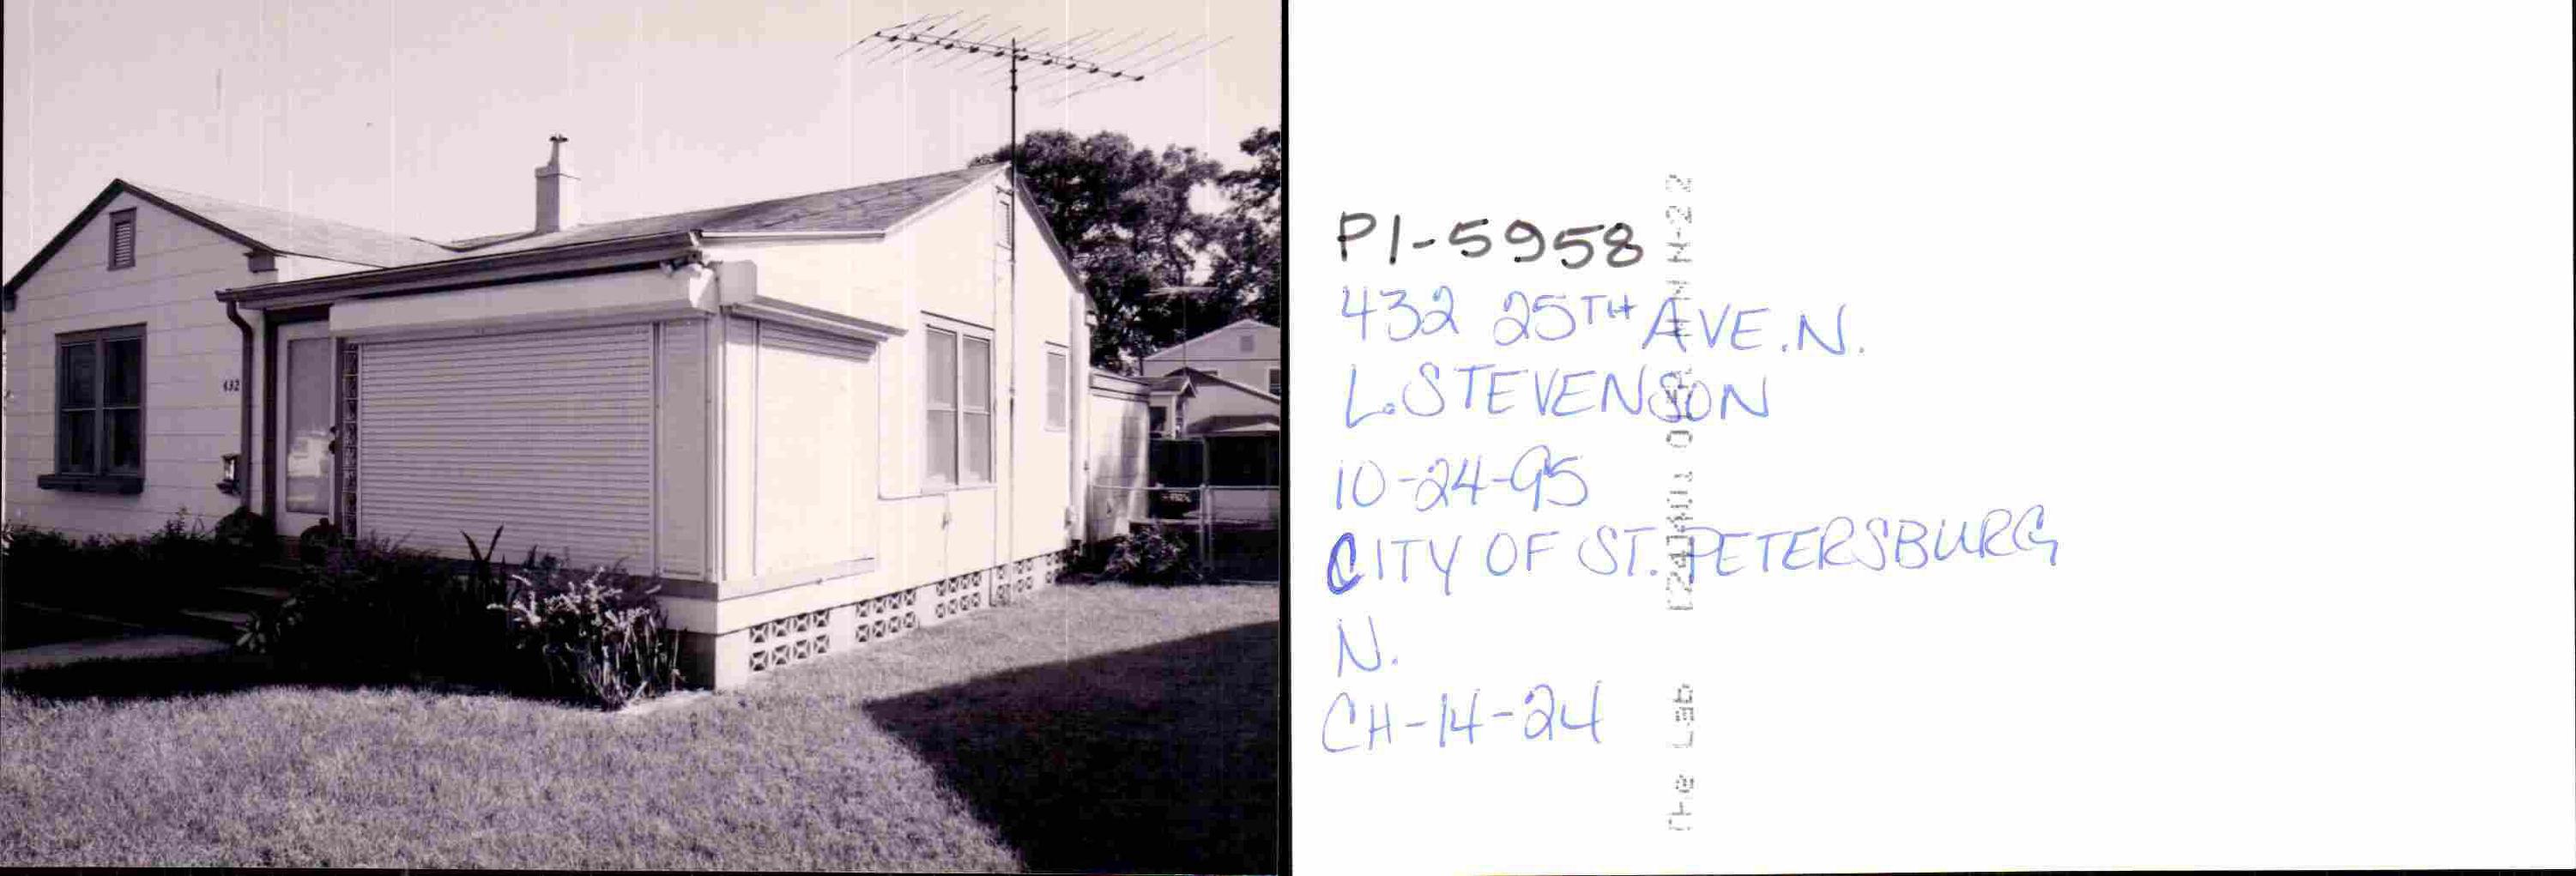 432
PI-5958
432 25TH AVE. N.
L. STEVENSON
10-24-95
CITY OF ST. PETERSBURG
N.
CH-14-24
The Lab